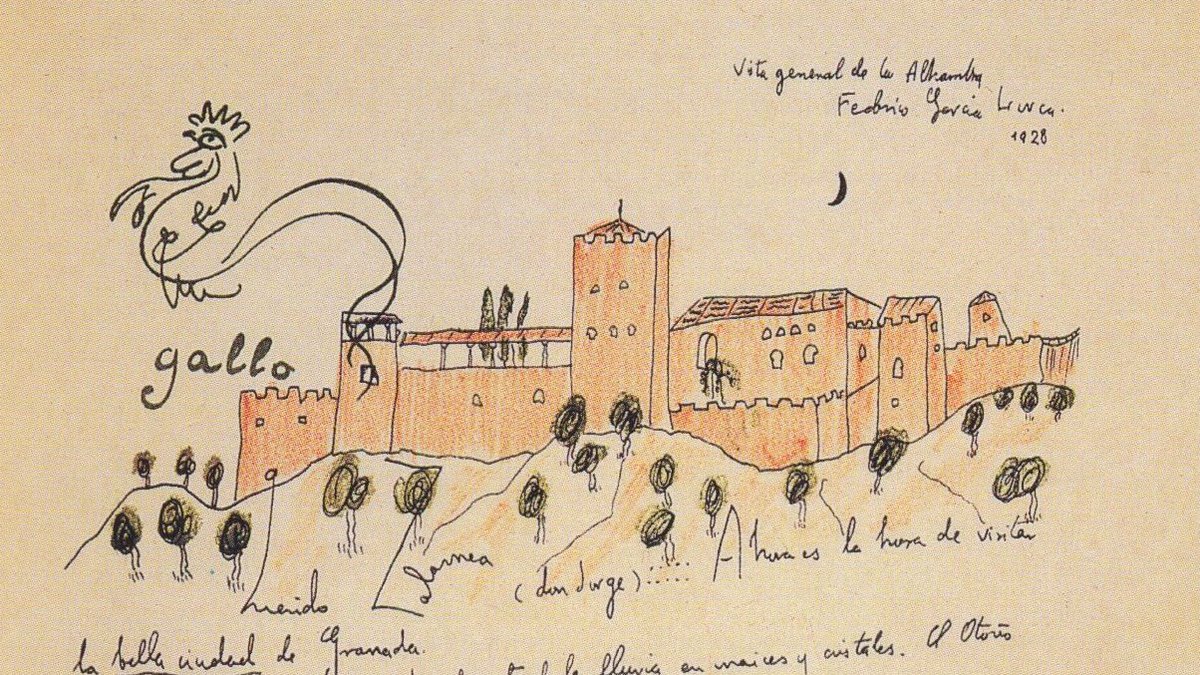 Vista general de la Alhambra
Federico García Lorca.
1928
gallo
Querido Zalamea (don Jorge) ::::: Ahora es la hora de visitar
la bella ciudad de Granada.
la lluvia en maices y cristales. El Otoño